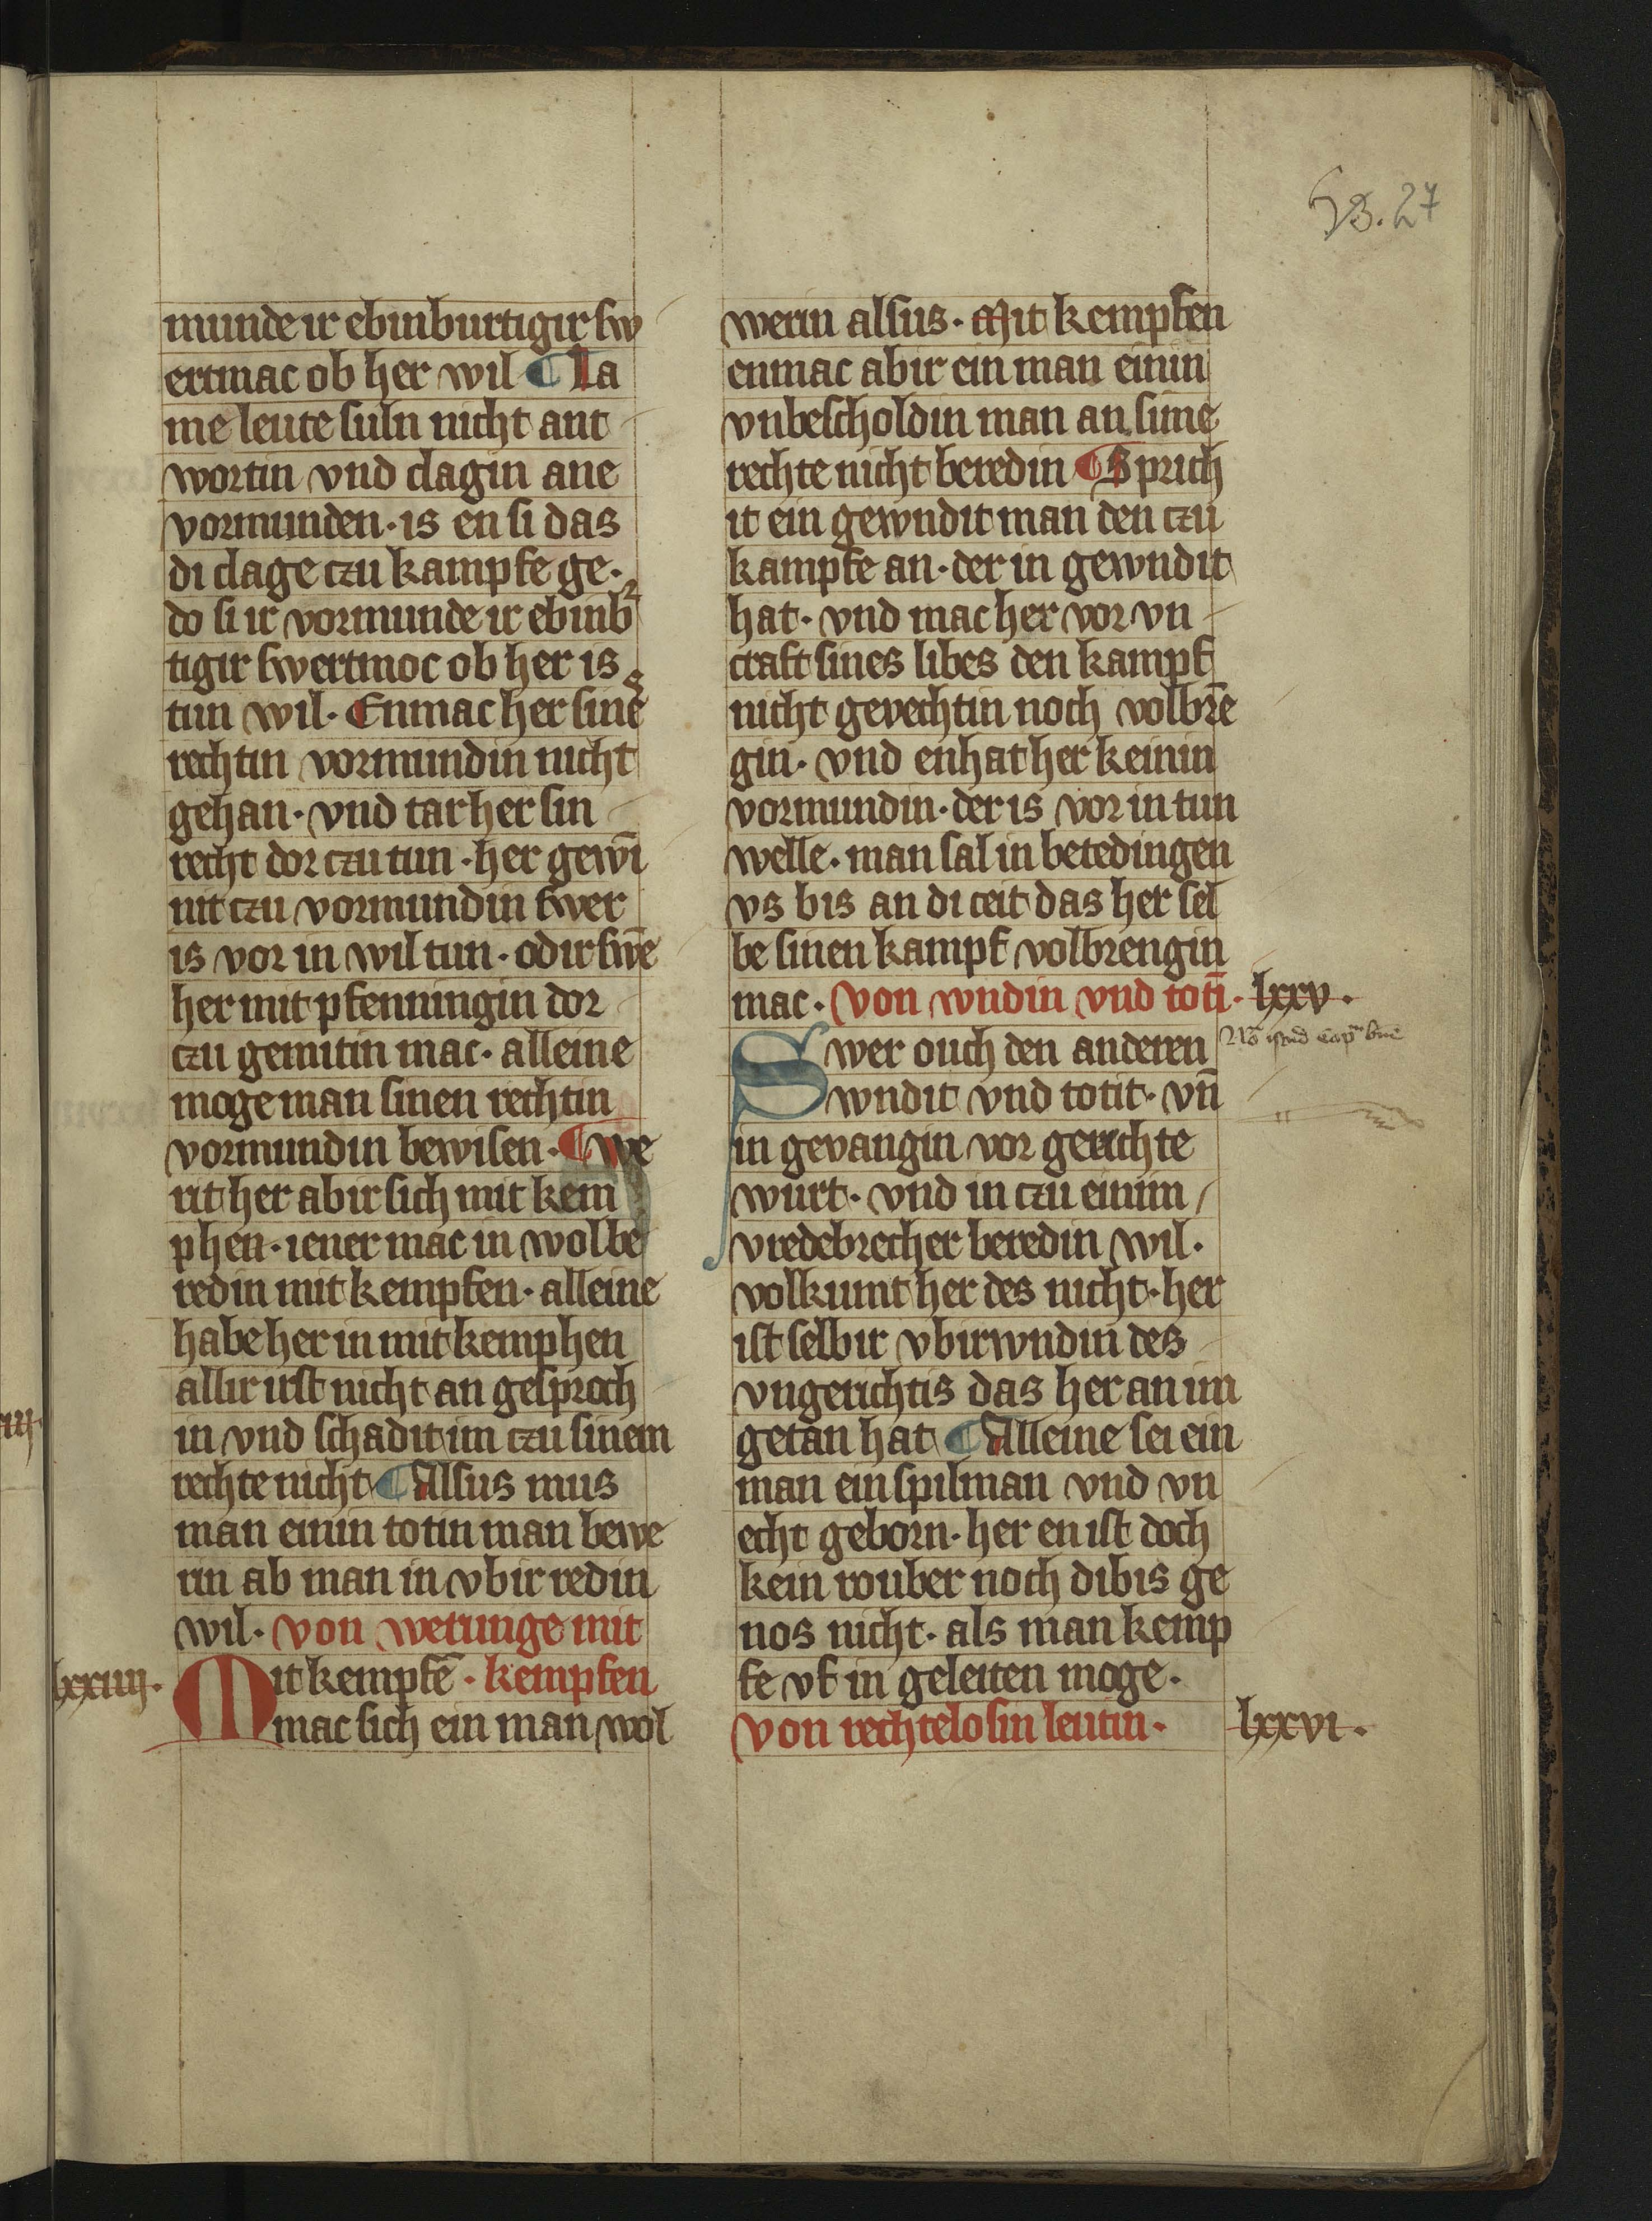 munde ir ebinburtigir sw
ertmac ob her wil ¶ La
me leute suln nicht ant
wortin vnd clagin ane
vormunden · is en si das
di clage czu kampfe ge·
do si ir vormunde ir ebinb
tigir swertmoc ob her is
tun wil · Enmac her sine
rechtin vormundin nicht
gehan · vnd tar her sin
recht dor czu tun · her gewī
nit czu vormundin swer
is vor in wil tun · odir swē
her mit pfenningin dor
czu gemitin mac · alleine
moge man sinen rechtin
vormundin bewisen · ¶ we
rit her abir sich mit kem
phen · iener mac in wol be
redin mit kempfen · alleine
habe her in mit kemphen
allir irst nicht an gesproch
in vnd schadit im czu sinem
rechte nicht ¶ Alsus mus
man einin totin man bewe
rin ab man in vbir redin
wil · von werunge mit
lxxiiij · Mit kempfē · kempfen
mac sich ein man wol
27
werin alsus · Mit kempfen
enmac abir ein man einin
vnbescholdin man an sime
rechte nicht beredin ¶ Sprich
it ein gewndit man den czu
kampfe an · der in gewndit
hat · vnd mac her vor vn
craft sines libes den kampf
nicht gevechtin noch volbrē
gin · vnd enhat her keinin
vormundin · der is vor in tun
welle · man sal in betedingen
vs bis an di ceit das her sel
be sinen kampf volbrengin
mac · von wndin vnd totī · lxxv ·
Swer ouch den anderen
wndit vnd totit · vn̄
in gevangin vor gerichte
wurt · vnd in czu einim
vredebrecher beredin wil ·
volkumt her des nicht · her
ist selbir vbirwndin des
vngerichtis das her an im
getan hat ¶ Alleine sei ein
man ein spilman vnd vn
echt geborn · her en ist doch
kein rouber noch dibis ge
nos nicht · als man kemp
fe vf in geleiten moge ·
von rechtelosin leutin · lxxvi ·